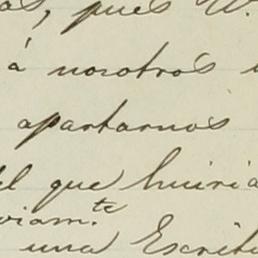 os, pues V.
á nosotros
apartarnos
el que huiria
viam.te
una Escrit